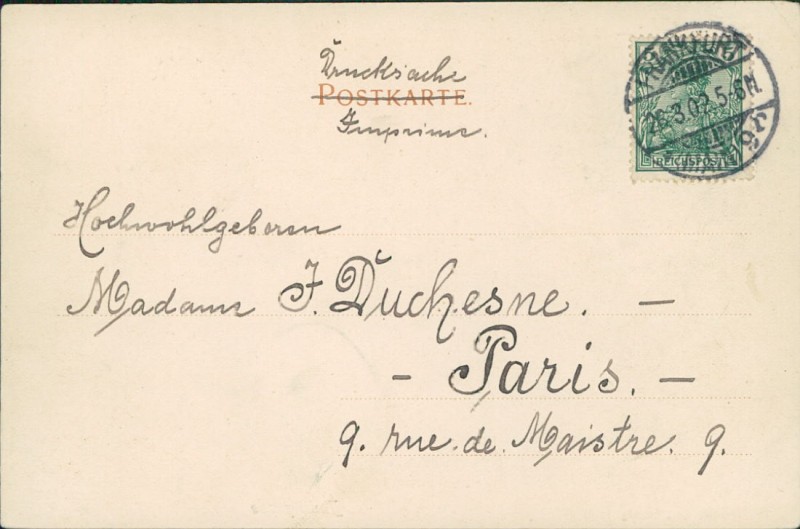 Drucksache
POSTKARTE.
Imprimé.
FRANKFURT
26.3.02.5-6N.
REICHSPOST
Hochwohlgeboren
Madame J. Duchesne. —
- Paris. -
9. rue de Maistre. 9.